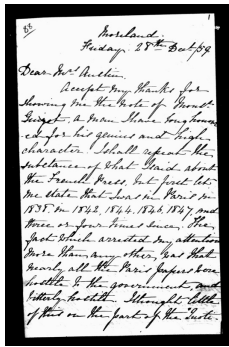 88
1
Moreland.
Friday. 28th Oct/59
Dear Mrs. Austin.
Accept my thanks for
showing me the note of Monsr
Guizot, a man I have long honour
-ed for his genius and high
character. I shall repeat the
substance of what I said about
the French Press, but first let
me state that I was in Paris in
1838. in 1842, 1844. 1846. 1847. and
three or four times since. The
fact which arrested my attention
more than any other, was that
nearly all the Paris papers were
hostile to the government, and
bitterly hostile. I thought little
of this on the part of the